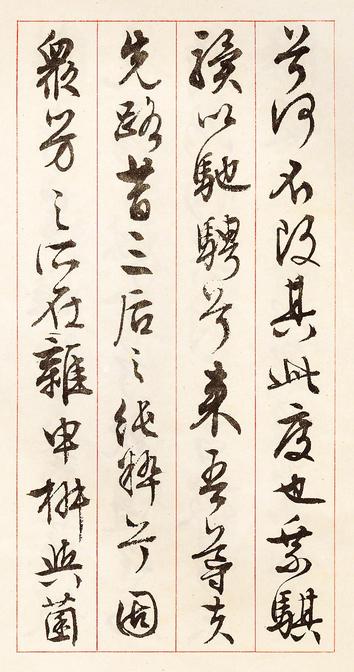 兮何不改其此度也乘騏
驥以馳騁兮来吾導夫
先路昔三后之純粹兮固
衆芳之所在雜申椒與菌